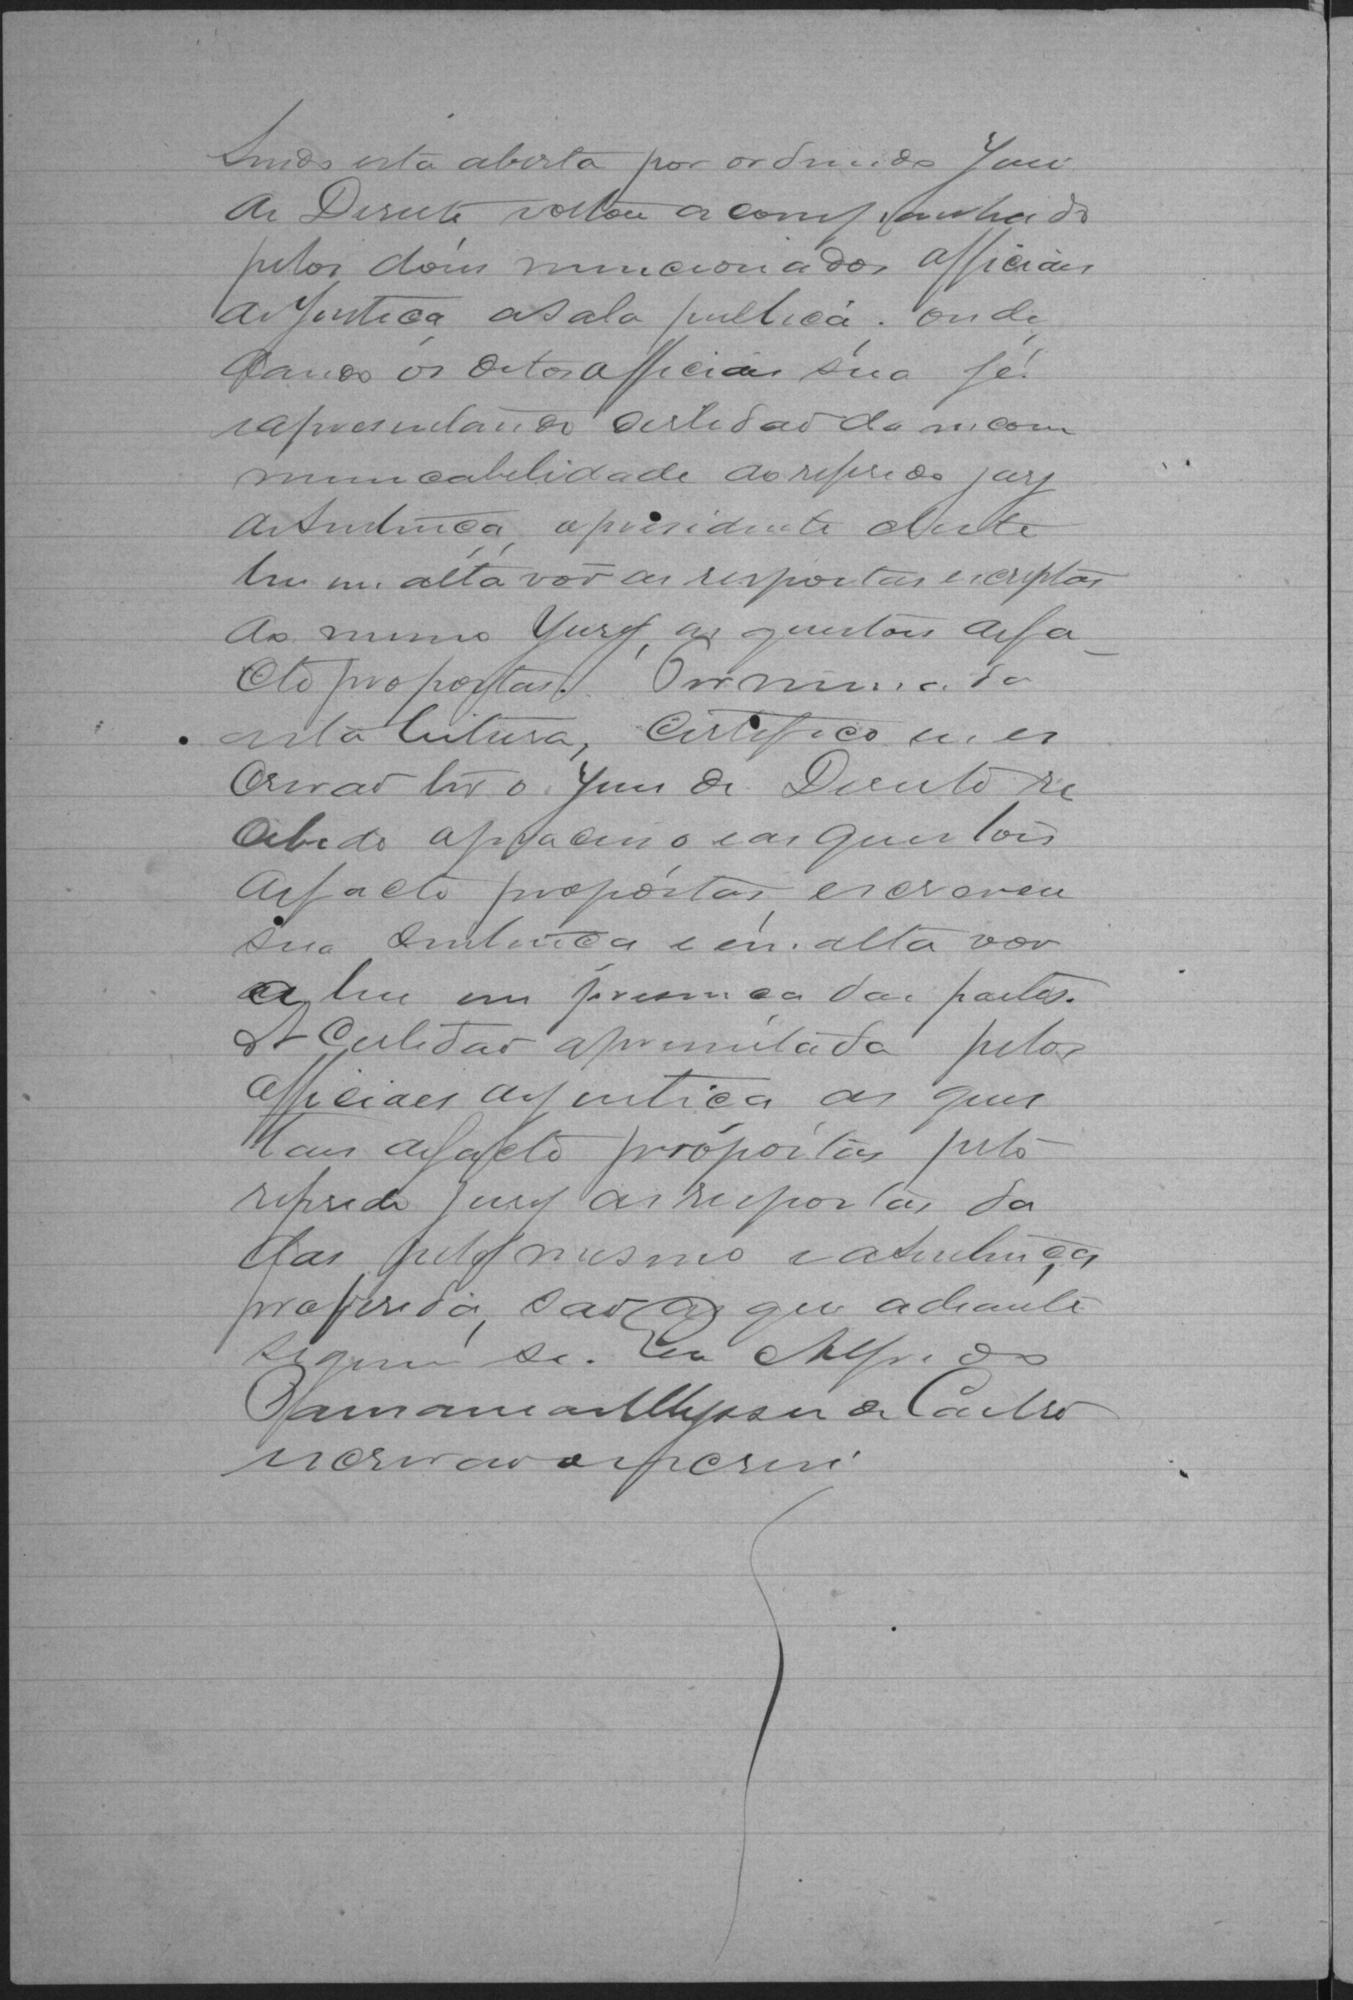 Sendo esta aberta por ordem do Juiz
de Direito voltou acompanhado
pelos dois mencionados officiaes
de Justiça a sala publica. onde
dando os ditos officiaes sua fé
e apresentando certidão da incom
municabilidade do referido jury
de sentença, o presidente deste
leu em alta voz as respostas escriptas
do mesmo Jury, as questões de fa_
cto propostas. Terminada
esta leitura, Certifico eu es
crivão ter o Juiz de Direito re
cebido o processo e as questões
de facto propostas, escreveu
sua sentença e em alta voz
a leu em presença das partes.
A Certidão apresentada pelos
officiaes de justiça as ques
tões de facto propostas pelo
referido jury as respostas da
das pelo mesmo e a sentença
proferida, são as que adiante
seguem se. Eu Alfredo
de Castro
escrivão o escrevi